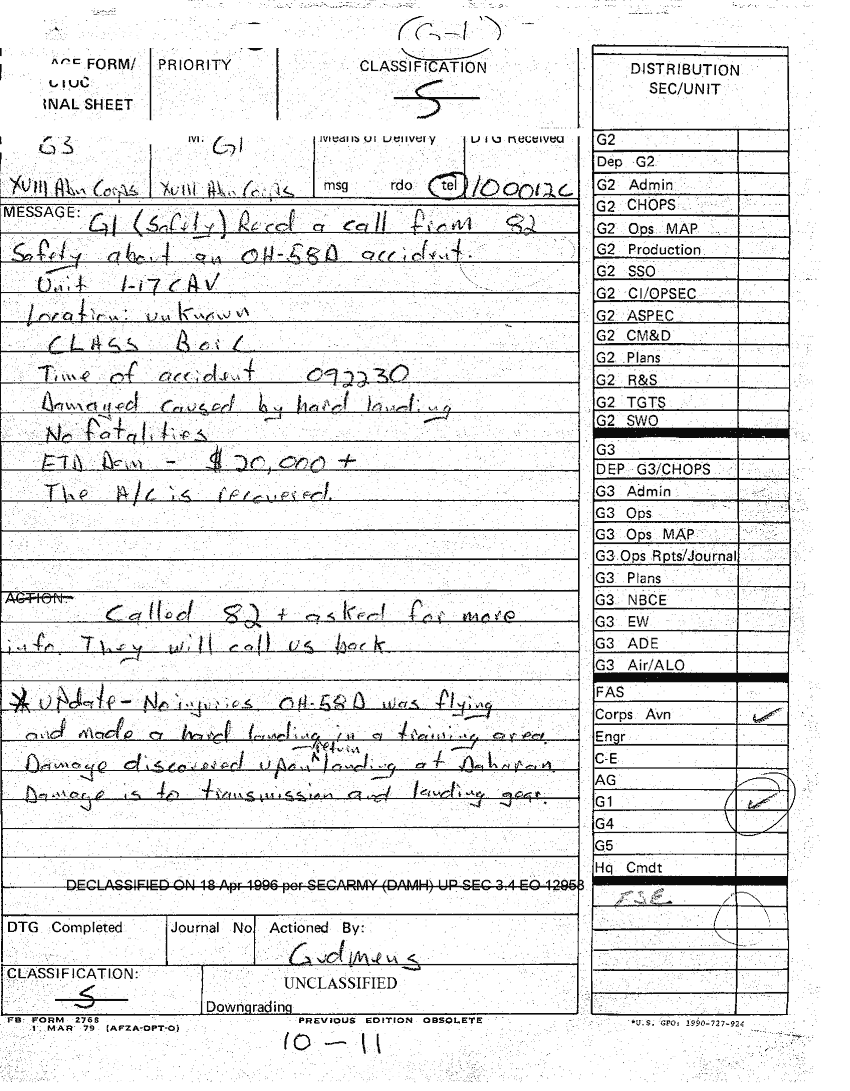 (G-1)
AGE FORM/
CTOC
NAL SHEET
PRIORITY
CLASSIFICATION
S
G3
M: G1
Means of Delivery
DTG Received
XVIII Abn Corps
XVIII Abn Corps
msg rdo tel
100012C
MESSAGE: G1 (Safety) Recd a call from 82
Safety about an OH-58D accident.
Unit 1-17 CAV
Location: unknown
CLASS B or C
Time of accident 092230
Damaged caused by hard landing
No fatalities
Dam - $20,000 +
The A/C is recovered.
ACTION:
Called 82 + asked for more
info. They will call us back
* Update - No injuries. OH-58D was flying
and made a hard landing in a training area.
Damage discovered upon return landing at Daharan.
Damage is to transmission and landing gear.
DECLASSIFIED ON 18 Apr 1996 per SECARMY (DAMH) UP SEC 3.4 EO 12958
DTG Completed
Journal No
Actioned By:
Gudmens
CLASSIFICATION:
S
UNCLASSIFIED
Downgrading
FB FORM 2768
1 MAR 79 (AFZA-DPT-O)
PREVIOUS EDITION OBSOLETE
10-11
DISTRIBUTION
SEC/UNIT
G2
Dep G2
G2 Admin
G2 CHOPS
G2 Ops MAP
G2 Production
G2 SSO
G2 CI/OPSEC
G2 ASPEC
G2 CM&D
G2 Plans
G2 R&S
G2 TGTS
G2 SWO
G3
DEP G3/CHOPS
G3 Admin
G3 Ops
G3 Ops MAP
G3 Ops Rpts/Journal
G3 Plans
G3 NBCE
G3 EW
G3 ADE
G3 Air/ALO
FAS
Corps Avn ✓
Engr
C-E
AG
G1 ✓
G4
G5
Hq Cmdt
FSE
*U.S. GPO: 1990-727-924